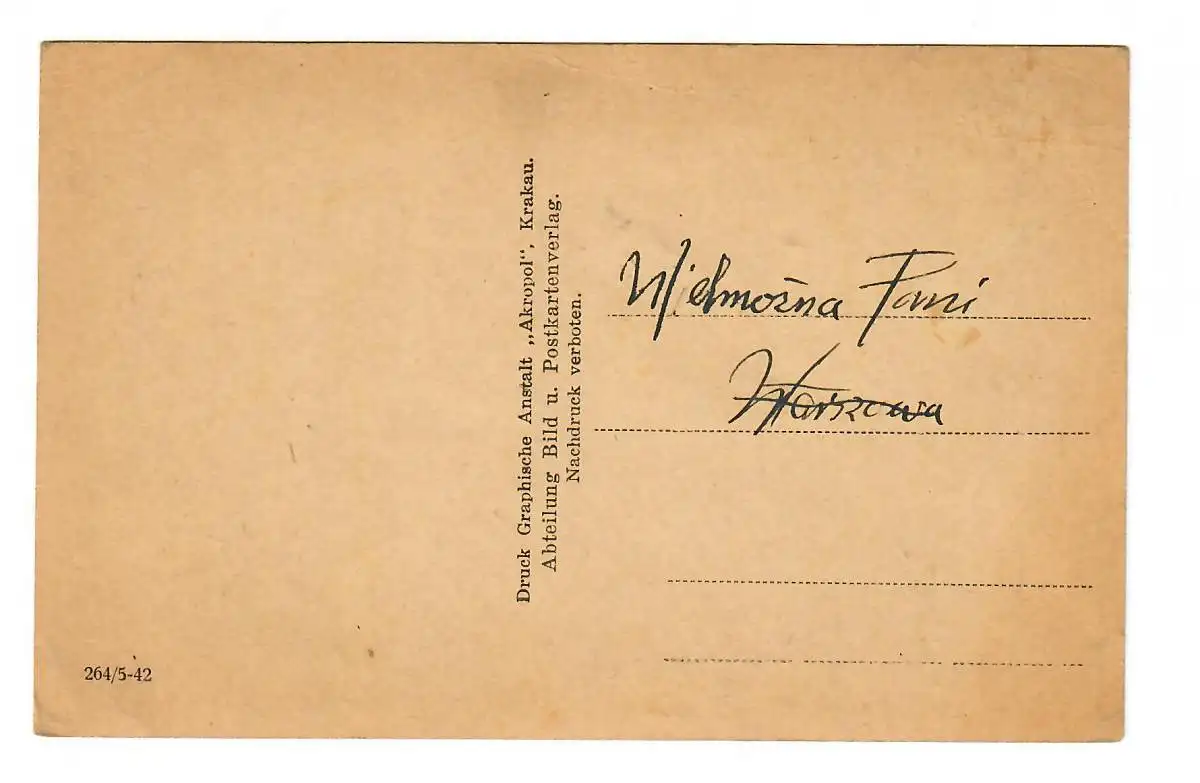 Druck Graphische Anstalt „Akropol“, Krakau.
Abteilung Bild u. Postkartenverlag.
Nachdruck verboten.
Wielmożna Pani
Warszawa
264/5-42